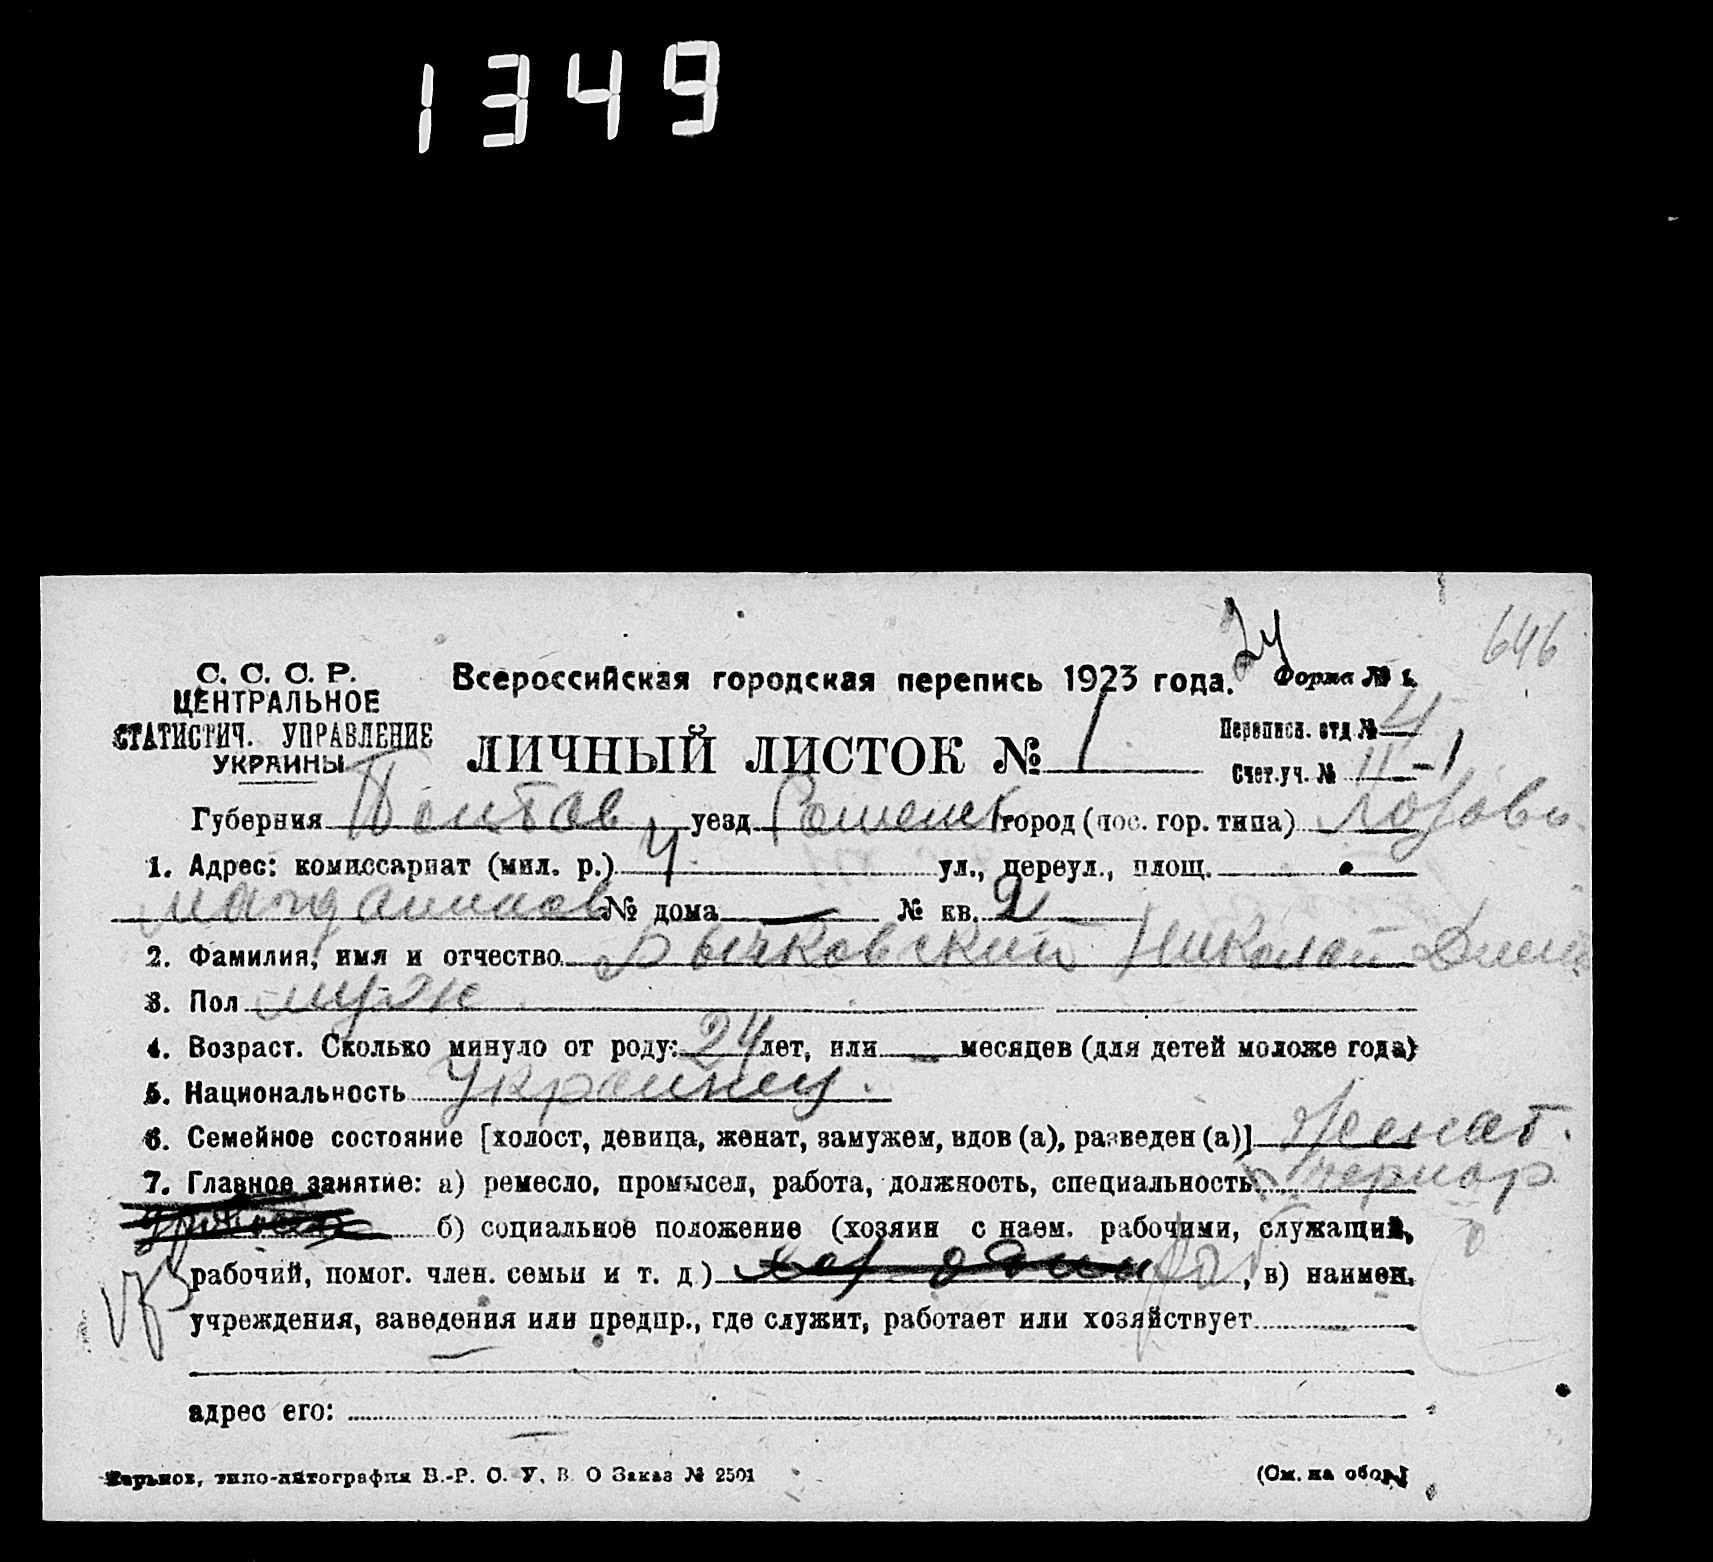 1349
646
24
С. С. С. Р.
ЦЕНТРАЛЬНОЕ
СТАТИСТИЧ. УПРАВЛЕНИЕ
УКРАИНЫ
Всероссийская городская перепись 1923 года.
Форма № 1.
ЛИЧНЫЙ ЛИСТОК № 1
Переписн. отд № 4
Счет.уч. № 11-1
Губерния Полтав уезд Роменск город (пос. гор. типа)
1. Адрес: комиссариат (мил. р.) 4 ул., переул., площ.
№ дома — № кв. 2
2. Фамилия, имя и отчество Бычковский Николай
3. Пол муж
4. Возраст. Сколько минуло от роду: 24 лет, или — месяцев (для детей моложе года)
5. Национальность Украинец.
6. Семейное состояние [холост, девица, женат, замужем, вдов (а), разведен (а)] Женат.
7. Главное занятие: а) ремесло, промысел, работа, должность, специальность
б) социальное положение (хозяин с наем. рабочими, служащий,
рабочий, помог. член. семьи и т. д.) , в) наимен.
учреждения, заведения или предпр., где служит, работает или хозяйствует
адрес его:
Харьков, типо-литография В.-Р. О. У. В. О Заказ № 2501
(См. на обор.)